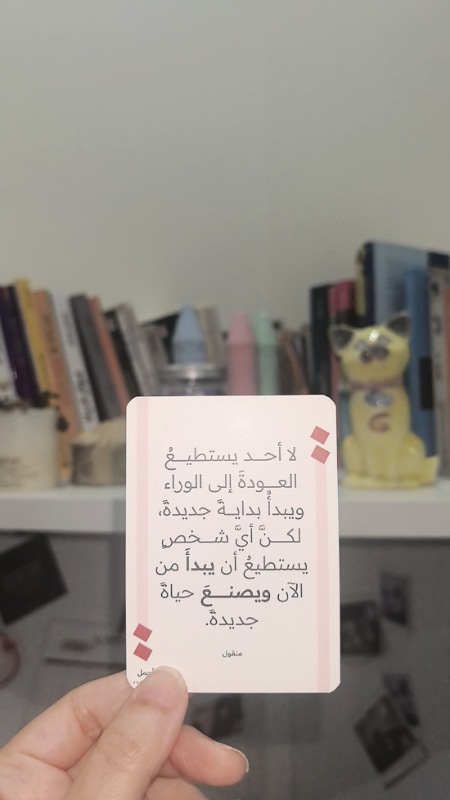 لا أحـد يستطيـعُ
العـودةَ إلى الوراء
ويبدأُ بدايـةً جديدةً،
لكـنَّ أيَّ شـخصٍ
يستطيعُ أن يبدأَ من
الآن ويصنـعَ حياةً
جديدةً.
منقول